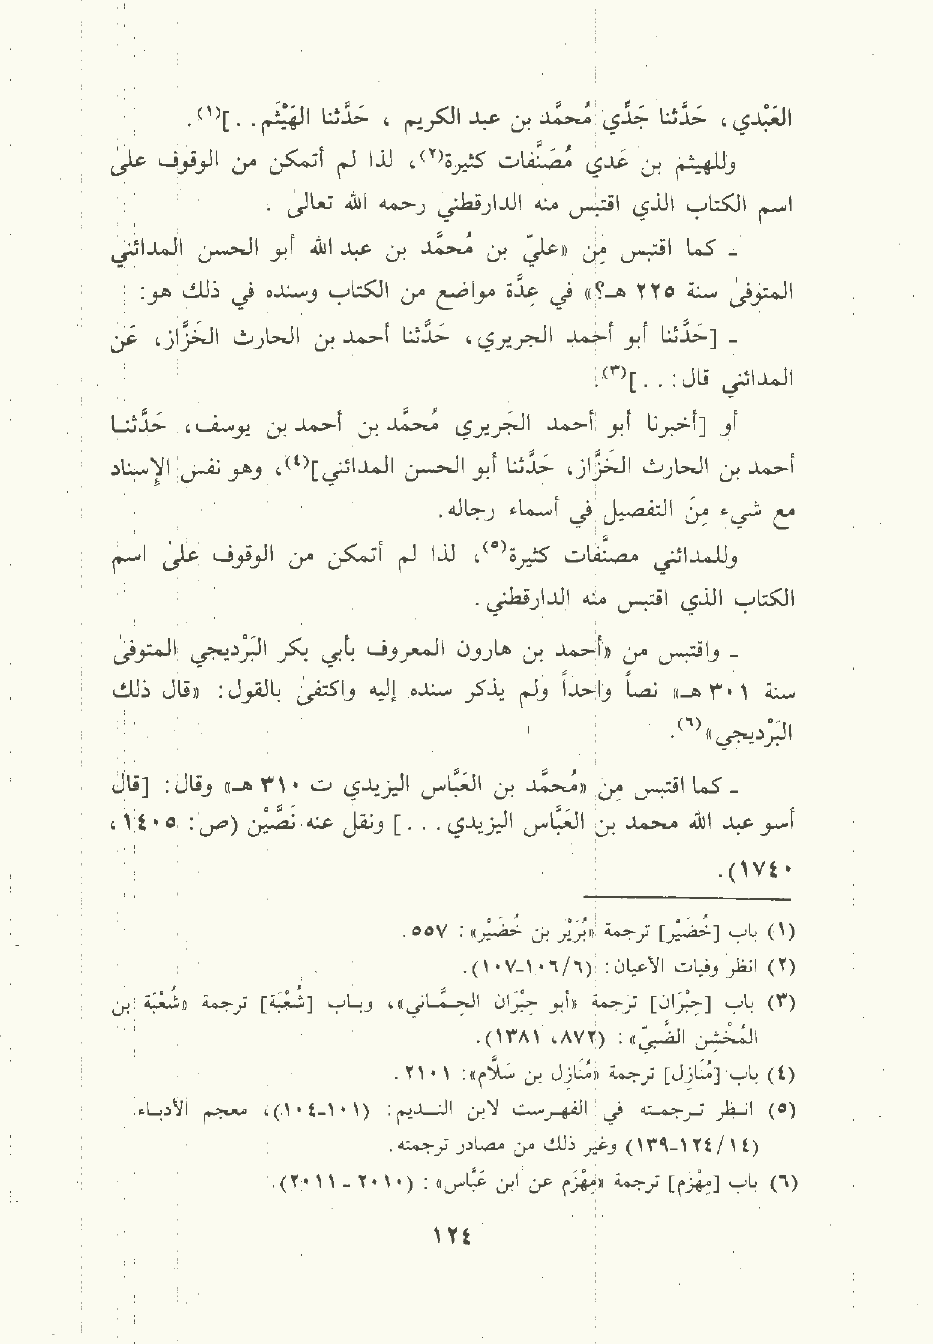 العَبْدي، حَدَّثنا جَدِّي مُحمَّد بن عبد الكريم ، حَدَّثنا الهَيْثَم. .](١).
وللهيثم بن عَدي مُصَنَّفات كثيرة(٢)، لذا لم أتمكن من الوقوف علىٰ
اسم الكتاب الذي اقتبس منه الدارقطني رحمه الله تعالىٰ .
ـ كما اقتبس مِن «عليّ بن مُحمَّد بن عبد الله أبو الحسن المدائني
المتوفىٰ سنة ٢٢٥ هـ؟» في عِدَّة مواضع من الكتاب وسنده في ذلك هو:
ـ [حَدَّثنا أبو أحمد الجريري، حَدَّثنا أحمد بن الحارث الخَزَّاز، عَن
المدائني قال: . .](٣).
أو [أخبرنا أبو أحمد الجَريري مُحمَّد بن أحمد بن يوسف، حَدَّثنا
أحمد بن الحارث الخَزاز، حَدَّثنا أبو الحسن المدائني](٤)، وهو نفس الإسناد
مع شيء مِنَ التفصيل في أسماء رجاله.
وللمدائني مصنَّفات كثيرة(٥)، لذا لم أتمكن من الوقوف علىٰ اسم
الكتاب الذي اقتبس منه الدارقطني.
ـ واقتبس من «أحمد بن هارون المعروف بأبي بكر البَرْديجي المتوفىٰ
سنة ٣٠١ هـ» نصاً واحداً ولم يذكر سنده إليه واكتفىٰ بالقول: «قال ذلك
البَرْديجي»(٦).
ـ كما اقتبس مِن «مُحمَّد بن العَبَّاس اليزيدي ت ٣١٠ هـ» وقال: [قال
أسو عبد الله محمد بن العَبَّاس اليزيدي. . .] ونقل عنه نَصَّيْن (ص: ١٤٠٥،
١٧٤٠).
(١) باب [خُضَيْر] ترجمة «بُرَيْر بن خُضَيْر»: ٥٥٧.
(٢) انظر وفيات الأعيان: (١٠٦/٦-١٠٧).
(٣) باب [جِبْرَان] ترجمة «أبو جِبْرَان الحِمَّاني»، وباب [شُعْبَة] ترجمة «شُعْبَة بن
المُخْشِن الضَّبيّ»: (٨٧٢، ١٣٨١).
(٤) باب [مُنَازِل] ترجمة «مُنَازِل بن سَلَّام»: ٢١٠١.
(٥) انظر ترجمته في الفهرست لابن النديم: (١٠١-١٠٤)، معجم الأدباء.
(١٢٤/١٤-١٣٩) وغير ذلك من مصادر ترجمته.
(٦) باب [مِهْزم] ترجمة «مِهْزم عن ابن عَبَّاس»: (٢٠١٠ - ٢٠١١).
١٢٤